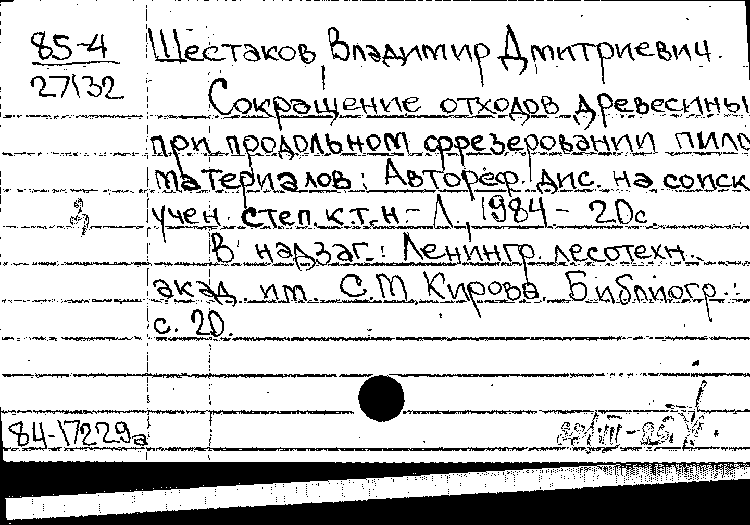 85-4
27132
Шестаков, Владимир Дмитриевич.
Сокращение отходов древесины
при продольном фрезеровании пило
материалов: Автореф. дис. на соиск
учен. степ. к.т.н. - Л., 1984 - 20с.
В надзаг.: Ленингр. лесотехн.
акад. им. С.М. Кирова. Библиогр.:
с. 20.
84-17229а